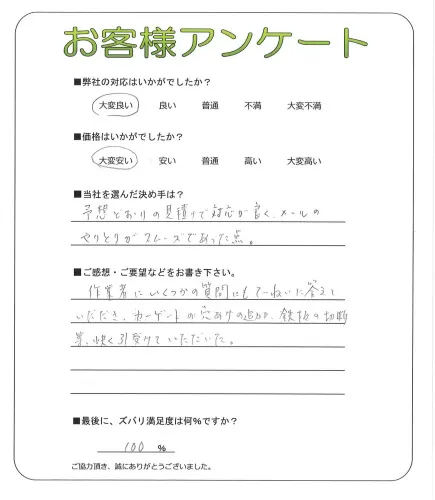 お客様アンケート
■弊社の対応はいかがでしたか?
大変良い 良い 普通 不満 大変不満
■価格はいかがでしたか?
大変安い 安い 普通 高い 大変高い
■当社を選んだ決め手は?
予想どおりの見積りで対応が良く、メールの
やりとりがスムーズであった点。
■ご感想・ご要望などをお書き下さい。
作業者にいくつかの質問にもていねいに答えて
いただき、カーゲートの穴あけの追加、鉄板の切断
等、快く引受けていただいた。
■最後に、ズバリ満足度は何%ですか?
100 %
ご協力頂き、誠にありがとうございました。